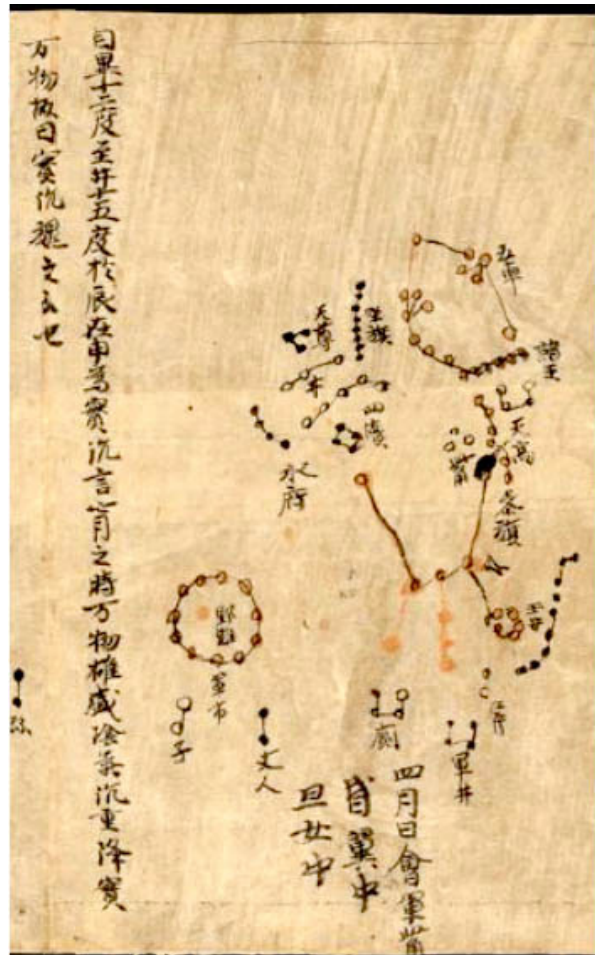 五車
諸王
坐旗
天尊
井
天高
觜
參旗
水府
玉井
野雞
軍市
子
丈人
廁
軍井
四月日會畢觜
昏翼中
旦女中
自畢十二度至井十五度於辰在申為實沉言七月之時万物雄盛陰氣沉重降實
万物故曰實沉魏之分也